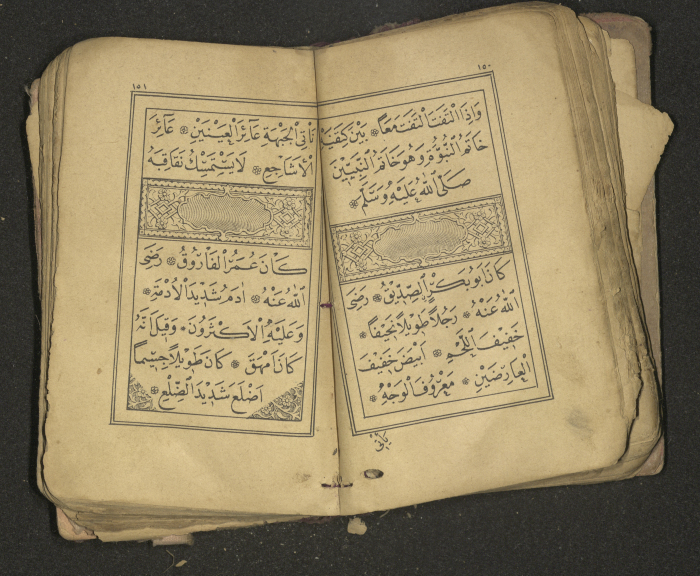 ١٥٠
وَاِذَا الْتَفَتَ الْتَفَتَ مَعًا ۞ بَيْنَ كَتِفَيْهِ
خَاتَمُ النُّبُوَّةِ وَهُوَ خَاتَمُ النَّبِيّٖينَ
صَلَّى اللّٰهُ عَلَيْهِ وَسَلَّمَ ۞
كَانَ اَبُو بَكْرٍ الصِّدّٖيقُ ۞ رَضِىَ
اللّٰهُ عَنْهُ ۞ رَجُلًا طَوٖيلًا نَحٖيفًا ۞
خَفٖيفَ اللَّحْمِ ۞ اَبْيَضَ خَفٖيفَ
الْعَارِضَيْنِ ۞ مَعْرُوفَ الْوَجْهِ ۞
١٥١
نَاتِئَ الْجَبْهَةِ غَائِرَ الْعَيْنَيْنِ ۞ عَارِىَ
الْاَشَاجِعِ ۞ لَا يَسْتَمْسِكُ
كَانَ عُمَرُ الْفَارُوقُ ۞ رَضِىَ
اللّٰهُ عَنْهُ ۞ اٰدَمُ شَدٖيدَ الْاُدْمَةِ ۞
وَعَلَيْهِ الْاَكْثَرُونَ ۞ وَقٖيلَ اِنَّهُ
كَانَ اَمْهَقَ ۞ كَانَ طَوٖيلًا جَسٖيمًا
اَصْلَعَ شَدٖيدَ الصَّلَعِ ۞